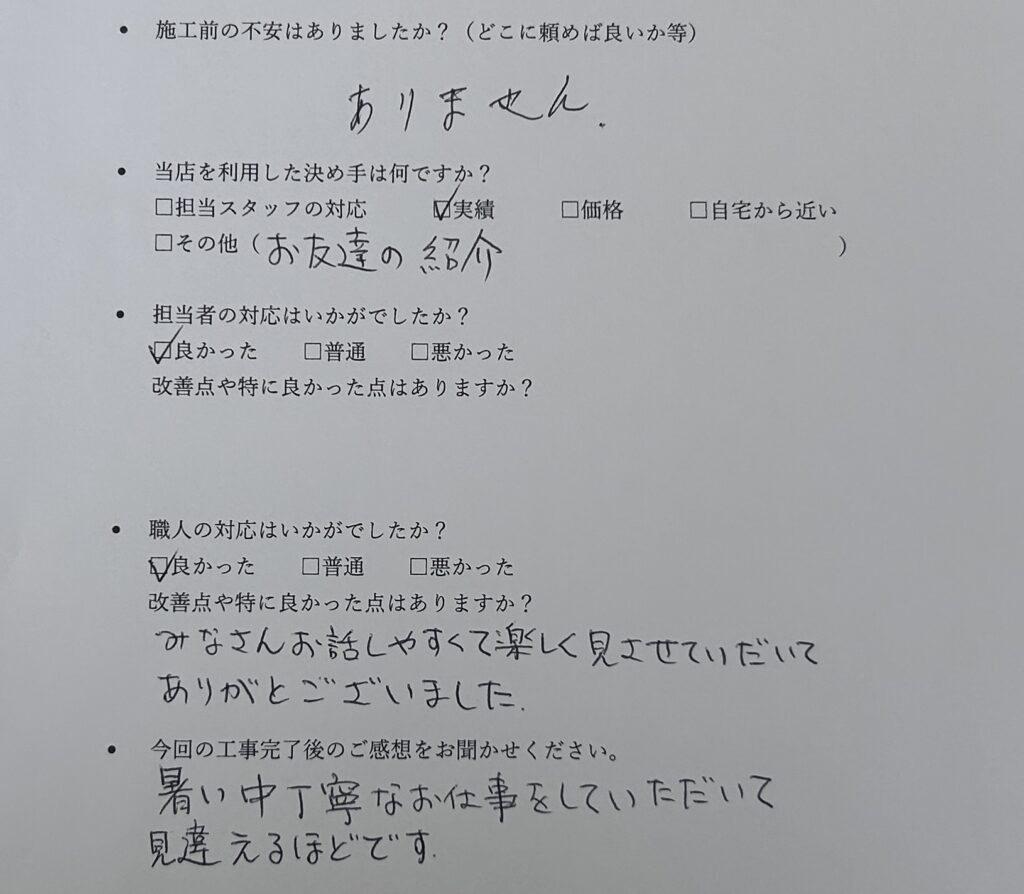 • 施工前の不安はありましたか？（どこに頼めば良いか等）
ありません.
• 当店を利用した決め手は何ですか？
□担当スタッフの対応 ☑実績 □価格 □自宅から近い
□その他（お友達の紹介）
• 担当者の対応はいかがでしたか？
☑良かった □普通 □悪かった
改善点や特に良かった点はありますか？
• 職人の対応はいかがでしたか？
☑良かった □普通 □悪かった
改善点や特に良かった点はありますか？
みなさんお話しやすくて楽しく見させていだいて
ありがとございました.
• 今回の工事完了後のご感想をお聞かせください。
暑い中丁寧なお仕事をしていただいて
見違えるほどです.